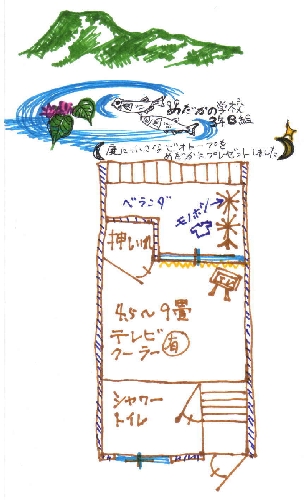 めだかの学校
3年B組
庭に小さなビオトープを
めだかにプレゼントしました
ベランダ
モノホシ
押し入れ
4.5～9畳
テレビ
クーラー 有
シャワー
トイレ